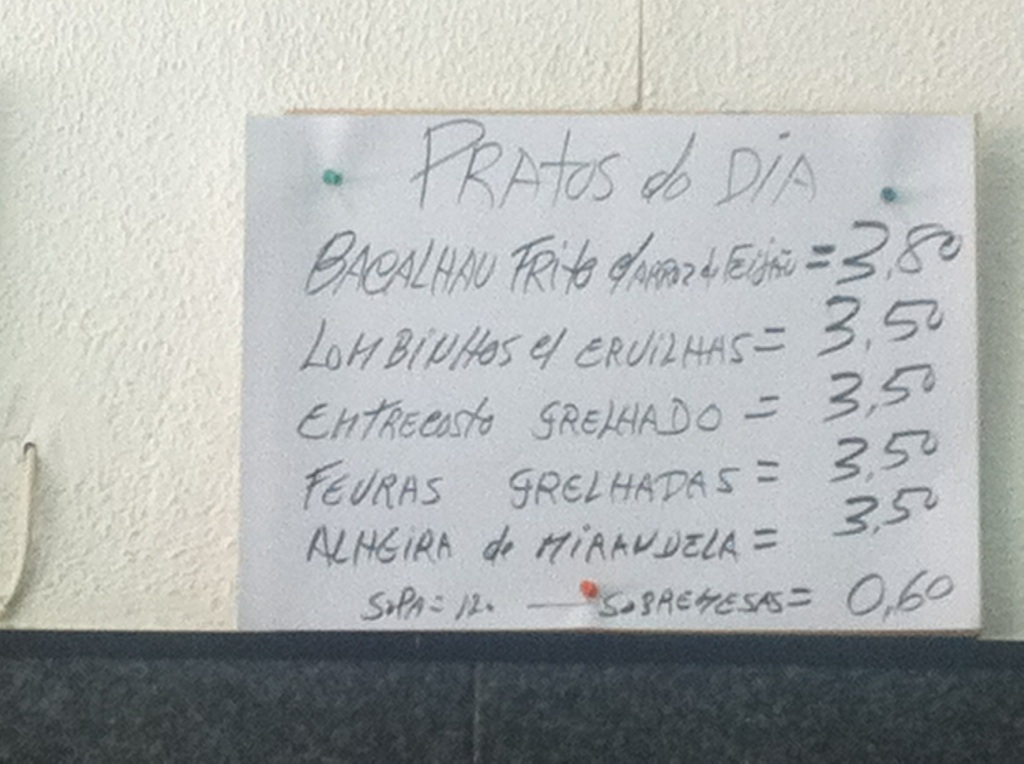 PRATOS do DIA
BACALHAU FRITO c/ARROZ de FEIJÃO = 3,80
LOMBINHOS c/ ERVILHAS = 3,50
ENTRECOSTO GRELHADO = 3,50
FEVRAS GRELHADAS = 3,50
ALHEIRA de MIRANDELA = 3,50
SOPA = — SOBREMESAS = 0,60